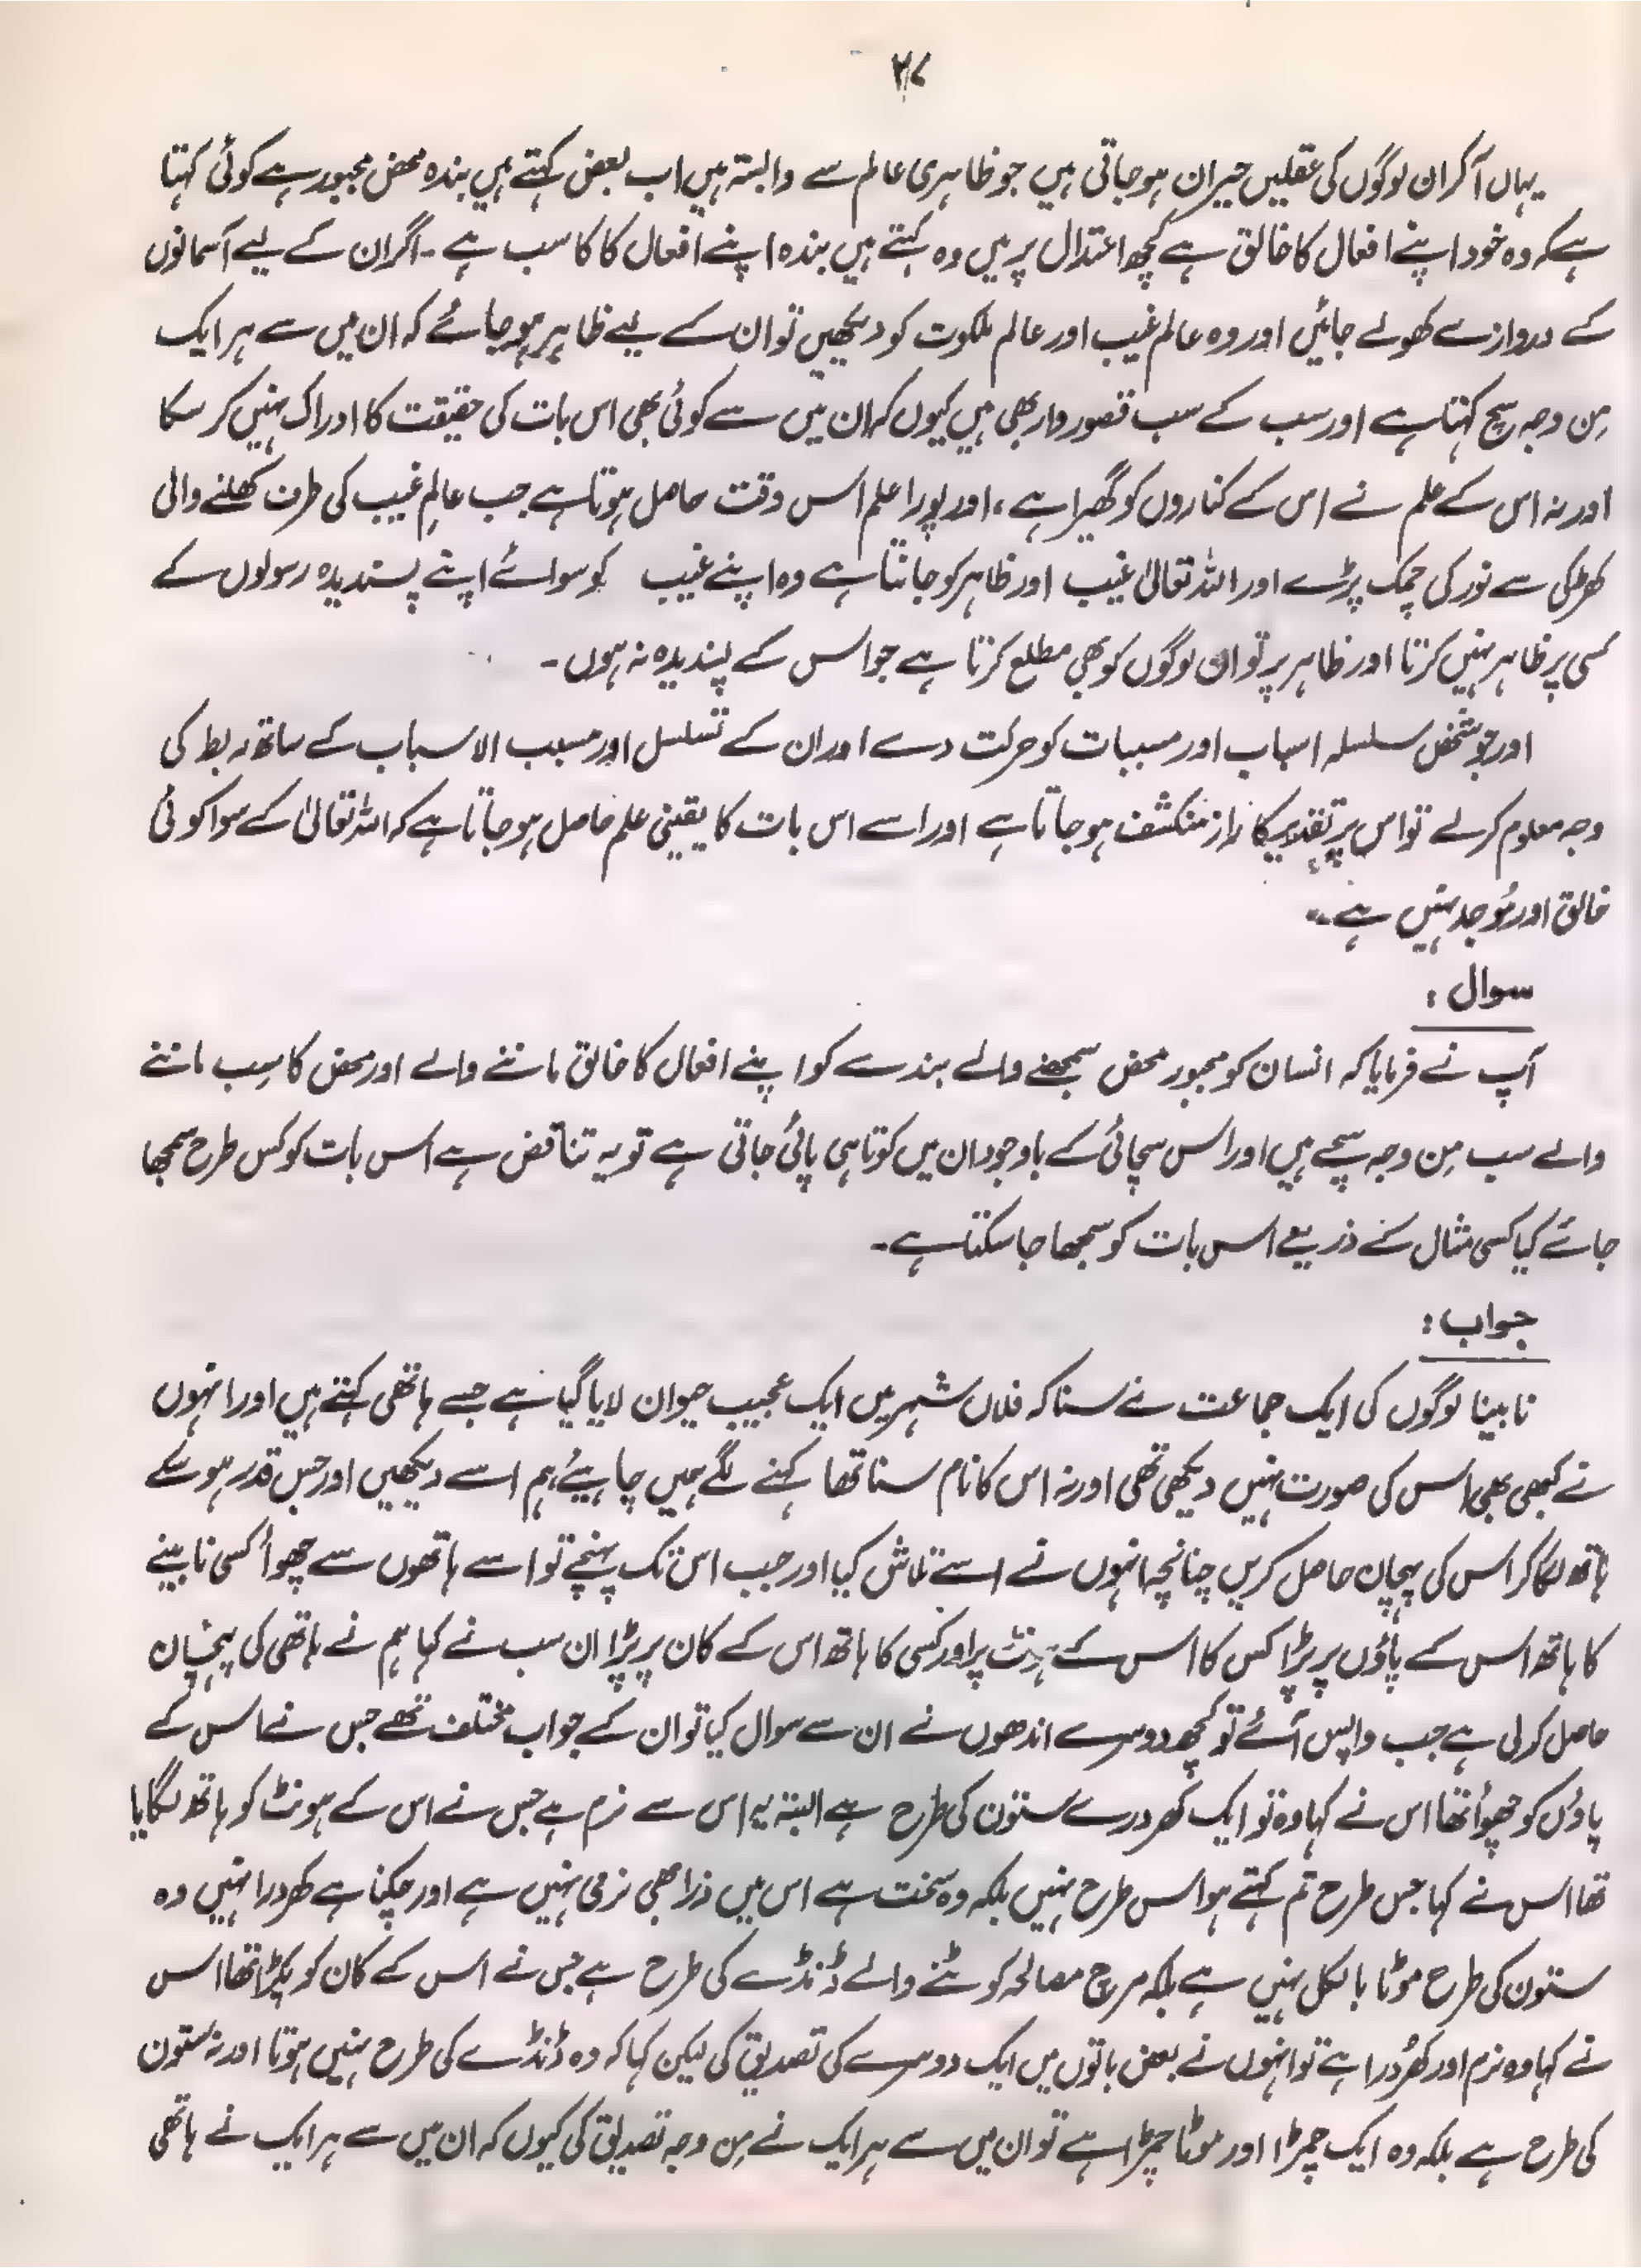 ۲۷
یہاں آکر ان لوگوں کی عقلیں حیران ہو جاتی ہیں جو ظاہری عالم سے وابستہ ہیں اب بعض کہتے ہیں بندہ محض مجبور ہے کوئی کہتا
ہے کہ وہ خود اپنے افعال کا خالق ہے کچھ اعتدال پر ہیں وہ کہتے ہیں بندہ اپنے افعال کا کاسب ہے ۔ اگر ان کے لیے آسمانوں
کے دروازے کھولے جائیں اور وہ عالم غیب اور عالم ملکوت کو دیکھیں تو ان کے لیے ظاہر ہو جائے کہ ان میں سے ہر ایک
مِن وجہ سچ کہتا ہے اور سب کے سب قصور وار بھی ہیں کیوں کہ ان میں سے کوئی بھی اس بات کی حقیقت کا ادراک نہیں کر سکا
اور نہ اس کے علم نے اس کے کناروں کو گھیرا ہے، اور پورا علم اس وقت حاصل ہوتا ہے جب عالمِ غیب کی طرف کھلنے والی
کھڑکی سے نور کی چمک پڑے اور اللہ تعالیٰ غیب اور ظاہر کو جانتا ہے وہ اپنے غیب کو سوائے اپنے پسندیدہ رسولوں کے
کسی پر ظاہر نہیں کرتا اور ظاہر پر تو ان لوگوں کو بھی مطلع کرتا ہے جو اس کے پسندیدہ نہ ہوں ۔
اور جو شخص سلسلہ اسباب اور مسببات کو حرکت دے اور ان کے تسلسل اور مسبب الاسباب کے ساتھ ربط کی
وجہ معلوم کرلے تو اس پر تقدیر کا راز منکشف ہو جاتا ہے اور اسے اس بات کا یقینی علم حاصل ہو جاتا ہے کہ اللہ تعالیٰ کے سوا کوئی
خالق اور مُوجد نہیں ہے۔
سوال :
آپ نے فرمایا کہ انسان کو مجبور محض سمجھنے والے بندے کو اپنے افعال کا خالق ماننے والے اور محض کاسِب ماننے
والے سب مِن وجہ سچے ہیں اور اس سچائی کے باوجود ان میں کوتاہی پائی جاتی ہے تو یہ تناقض ہے اس بات کو کس طرح سمجھا
جائے کیا کسی مثال کے ذریعے اس بات کو سمجھا جا سکتا ہے۔
جواب :
نابینا لوگوں کی ایک جماعت نے سنا کہ فلاں شہر میں ایک عجیب حیوان لایا گیا ہے جسے ہاتھی کہتے ہیں اور انہوں
نے کبھی بھی اس کی صورت نہیں دیکھی تھی اور نہ اس کا نام سنا تھا کہنے لگے ہمیں چاہیئے ہم اسے دیکھیں اور جس قدر ہو سکے
ہاتھ لگا کر اس کی پہچان حاصل کریں چنانچہ انہوں نے اسے تلاش کیا اور جب اس تک پہنچے تو اسے ہاتھوں سے چھوأ کسی نابینے
کا ہاتھ اس کے پاؤں پر پڑا کس کا اس کے پر اور کسی کا ہاتھ اس کے کان پر پڑا ان سب نے کہا ہم نے ہاتھی کی پہچان
حاصل کر لی ہے جب واپس آئے تو کچھ دوسرے اندھوں نے ان سے سوال کیا تو ان کے جواب مختلف تھے جس نے اس کے
پاؤں کو چھوأ تھا اس نے کہا وہ تو ایک کھردرے ستون کی طرح ہے البتہ یہ اس سے نرم ہے جس نے اس کے ہونٹ کو ہاتھ لگایا
تھا اس نے کہا جس طرح تم کہتے ہو اس طرح نہیں بلکہ وہ سخت ہے اس میں ذرا بھی نرمی نہیں ہے اور چکنا ہے کھردرا نہیں وہ
ستون کی طرح موٹا بالکل نہیں ہے بلکہ مرچ مصالحہ کوٹنے والے ڈنڈے کی طرح ہے جس نے اس کے کان کو پکڑا تھا اس
نے کہا وہ نرم اور کھُردرا ہے تو انہوں نے بعض باتوں میں ایک دوسرے کی تصدیق کی لیکن کہا کہ وہ ڈنڈے کی طرح نہیں ہوتا اور نہ ستون
کی طرح ہے بلکہ وہ ایک چمڑا اور موٹا چمڑا ہے تو ان میں سے ہر ایک نے مِن وجہ تصدیق کی کیوں کہ ان میں سے ہر ایک نے ہاتھی